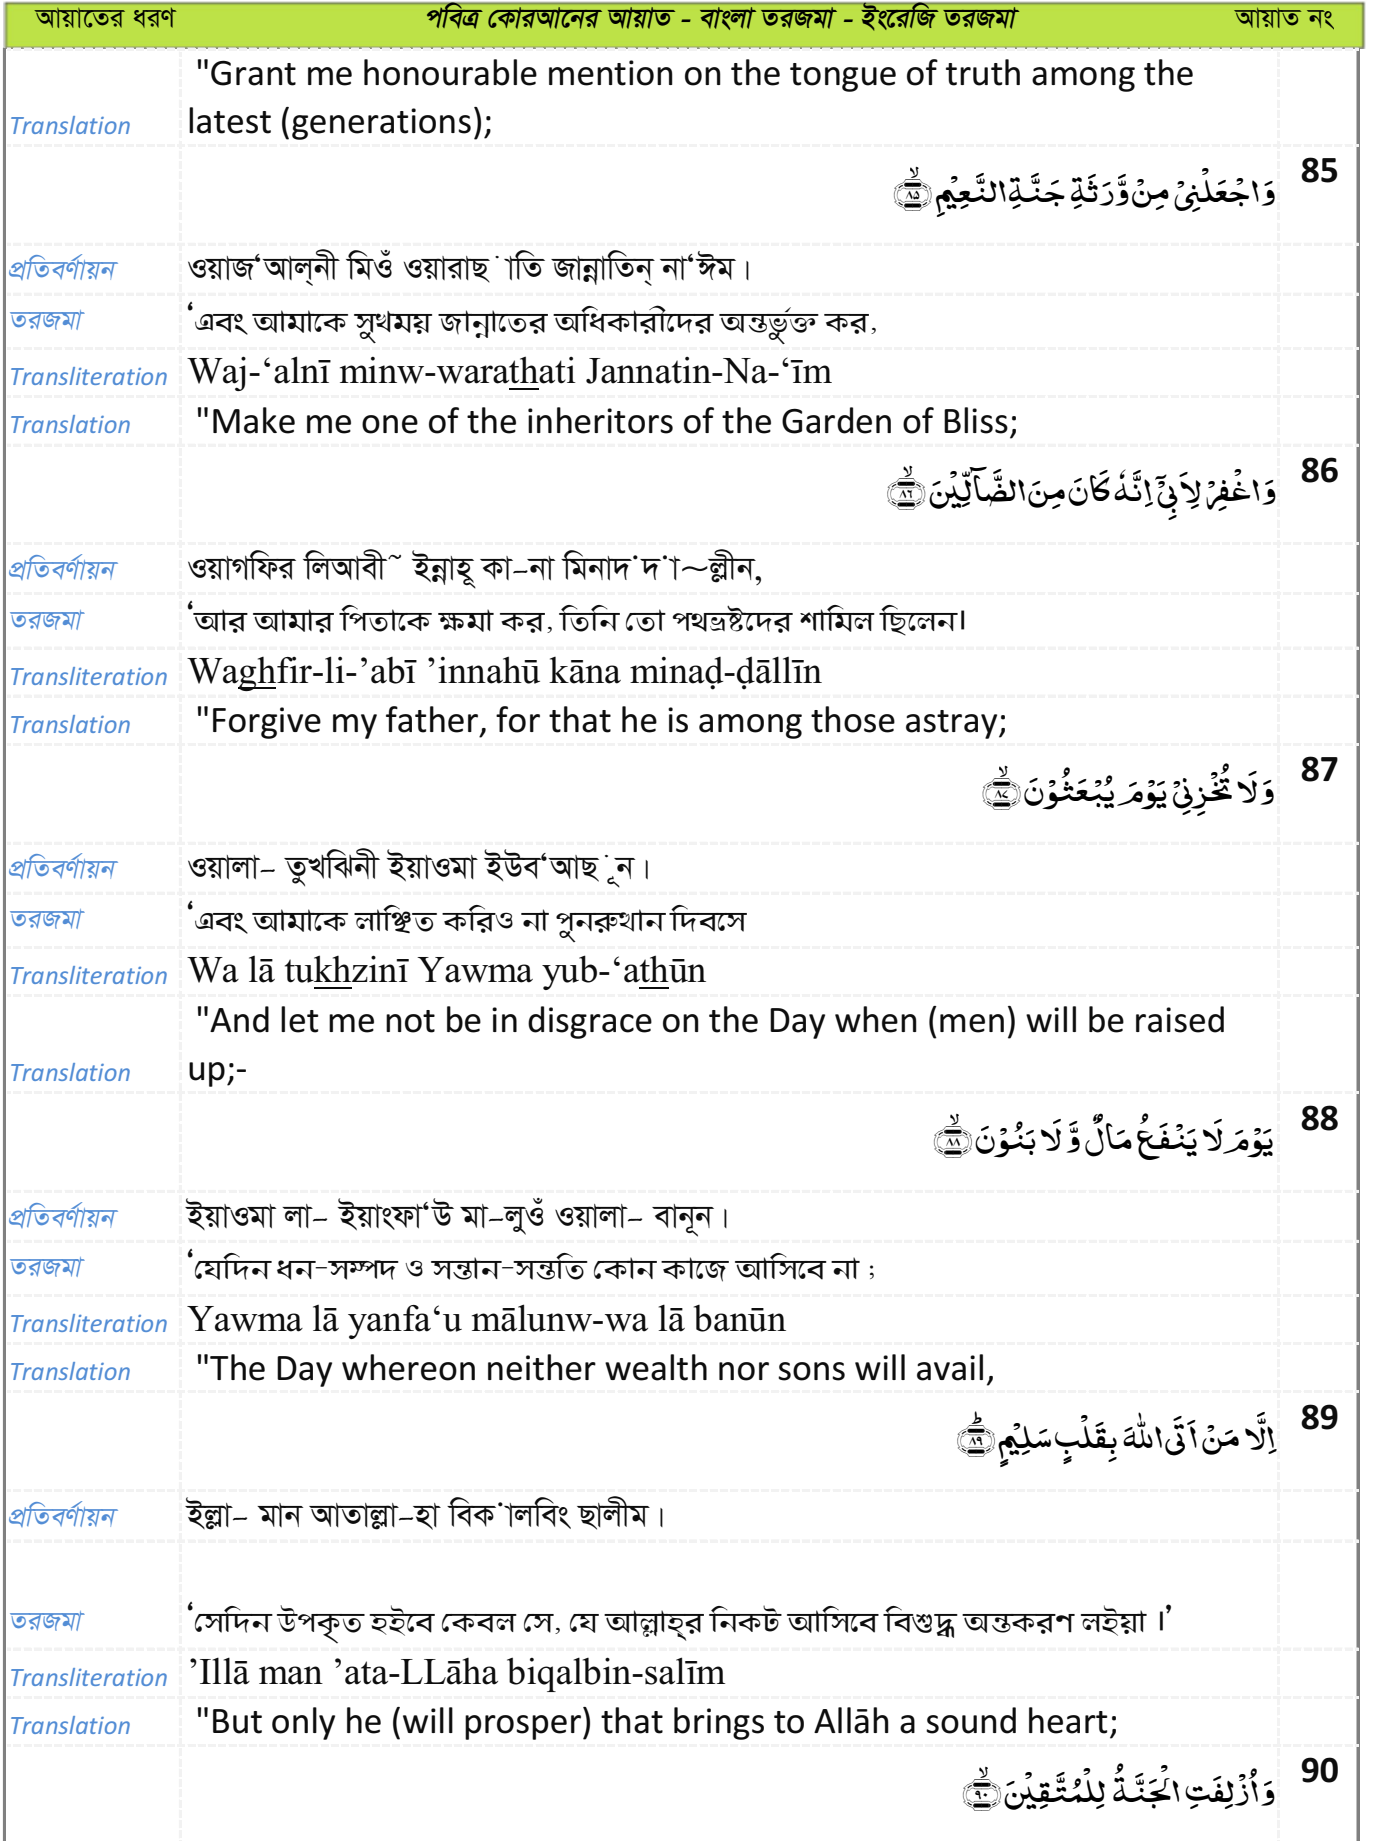 আয়াতের ধরণ পবিত্র কোরআনের আয়াত - বাংলা তরজমা - ইংরেজি তরজমা আয়াত নং
"Grant me honourable mention on the tongue of truth among the
Translation latest (generations);
85
وَاجْعَلْنِیْ مِنْ وَّرَثَةِ جَنَّةِ النَّعِیْمِ ۙ﴿۸۵﴾
প্রতিবর্ণায়ন ওয়াজ‘আল্‌নী মিওঁ ওয়ারাছ ˙াতি জান্নাতিন্ না‘ঈম।
তরজমা ‘এবং আমাকে সুখময় জান্নাতের অধিকারীদের অন্তর্ভুক্ত কর,
Transliteration Waj-‘alnī minw-warathati Jannatin-Na-‘īm
Translation "Make me one of the inheritors of the Garden of Bliss;
86
وَاغْفِرْ لِاَبِیْۤ اِنَّهٗ كَانَ مِنَ الضَّآلِّیْنَ ۙ﴿۸۶﴾
প্রতিবর্ণায়ন ওয়াগফির লিআবী~ ইন্নাহূ কা–না মিনাদ˙দ˙া~ল্লীন,
তরজমা ‘আর আমার পিতাকে ক্ষমা কর, তিনি তো পথভ্রষ্টদের শামিল ছিলেন।
Transliteration Waghfir-li-’abī ’innahū kāna minaḍ-ḍāllīn
Translation "Forgive my father, for that he is among those astray;
87
وَلَا تُخْزِنِیْ یَوْمَ یُبْعَثُوْنَ ۙ﴿۸۷﴾
প্রতিবর্ণায়ন ওয়ালা– তুখঝিনী ইয়াওমা ইউব‘আছ˙ূন।
তরজমা ‘এবং আমাকে লাঞ্ছিত করিও না পুনরুত্থান দিবসে
Transliteration Wa lā tukhzinī Yawma yub-‘athūn
"And let me not be in disgrace on the Day when (men) will be raised
Translation up;-
88
یَوْمَ لَا یَنْفَعُ مَالٌ وَّلَا بَنُوْنَ ۙ﴿۸۸﴾
প্রতিবর্ণায়ন ইয়াওমা লা– ইয়াংফা‘উ মা–লুওঁ ওয়ালা– বানূন।
তরজমা ‘যেদিন ধন-সম্পদ ও সন্তান-সন্ততি কোন কাজে আসিবে না ;
Transliteration Yawma lā yanfa‘u mālunw-wa lā banūn
Translation "The Day whereon neither wealth nor sons will avail,
89
اِلَّا مَنْ اَتَی اللّٰهَ بِقَلْبٍ سَلِیْمٍ ؕ﴿۸۹﴾
প্রতিবর্ণায়ন ইল্লা– মান আতাল্লা–হা বিক˙ালবিং ছালীম।
তরজমা ‘সেদিন উপকৃত হইবে কেবল সে, যে আল্লাহ্‌র নিকট আসিবে বিশুদ্ধ অন্তকরণ লইয়া ।’
Transliteration ’Illā man ’ata-LLāha biqalbin-salīm
Translation "But only he (will prosper) that brings to Allāh a sound heart;
90
وَاُزْلِفَتِ الْجَنَّةُ لِلْمُتَّقِیْنَ ۙ﴿۹۰﴾